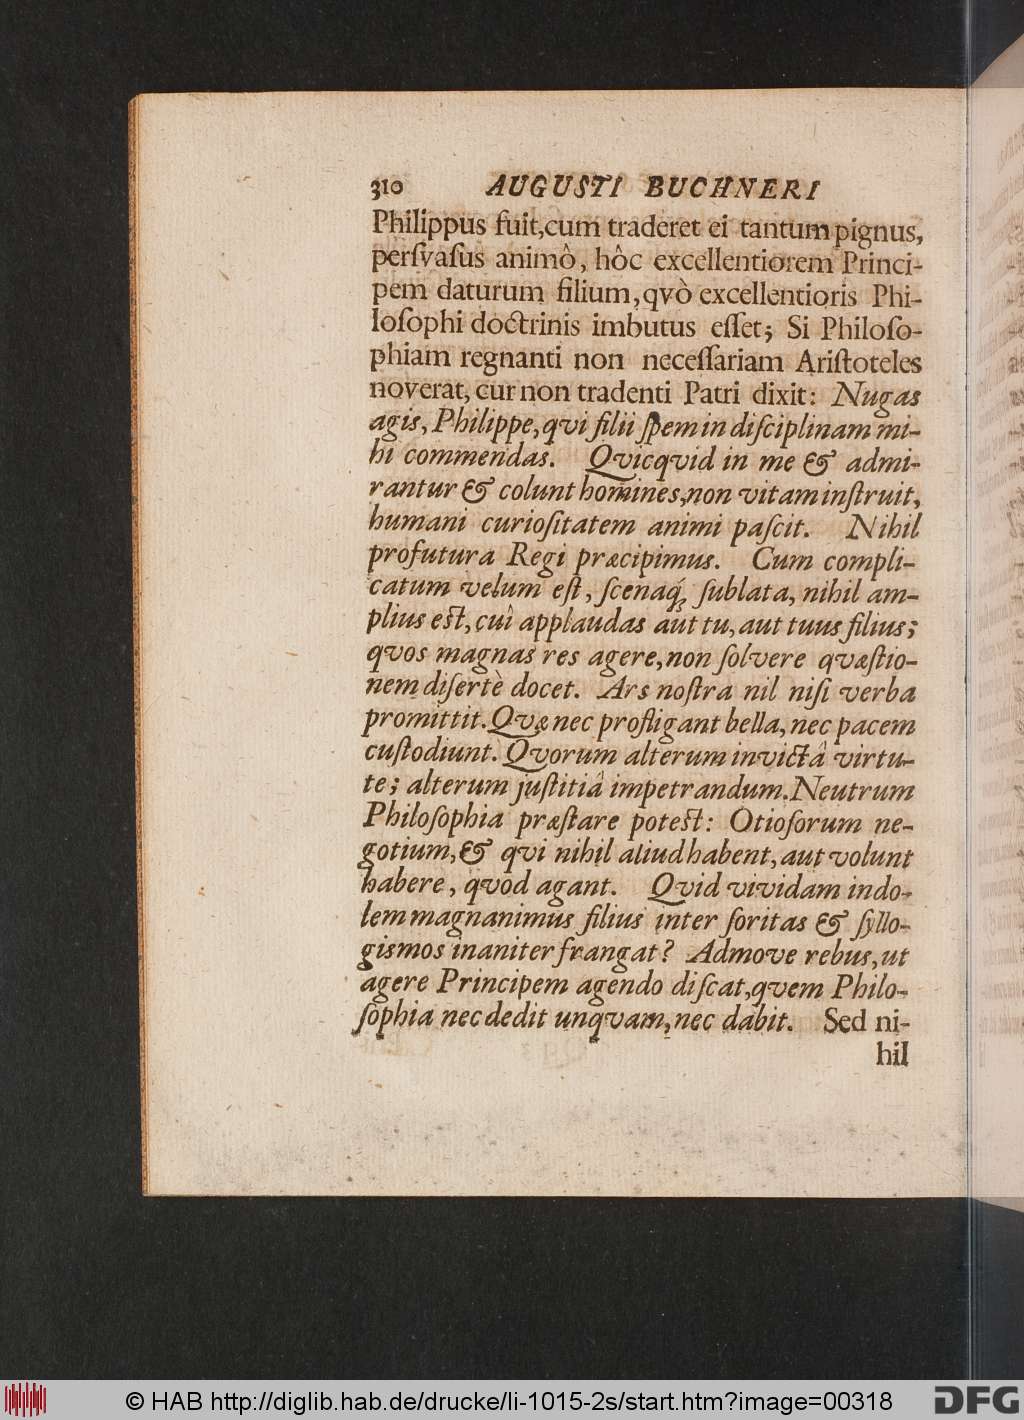 310 AUGUSTI BUCHNERI
Philippus fuit,cum traderet ei tantum pignus,
perſvaſus animô, hôc excellentiorem Princi-
pem daturum filium, qvò excellentioris Phi-
loſophi doctrinis imbutus eſſet; Si Philoſo-
phiam regnanti non neceſſariam Ariſtoteles
noverat, cur non tradenti Patri dixit: Nugas
agis, Philippe, qvi filii ſpem in diſciplinam mi-
hi commendas. Qvicqvid in me & admi-
rantur & colunt homines, non vitam inſtruit,
humani curioſitatem animi paſcit. Nihil
profutura Regi præcipimus. Cum compli-
catum velum eſt, ſcenaq́ꝫ ſublata, nihil am-
plius eſt, cui applaudas aut tu, aut tuus filius;
qvos magnas res agere, non ſolvere qvæſtio-
nem diſertè docet. Ars noſtra nil niſi verba
promittit. Qvæ nec profligant bella, nec pacem
cuſtodiunt. Qvorum alterum invictâ virtu-
te; alterum juſtitiâ impetrandum. Neutrum
Philoſophia præſtare poteſt: Otioſorum ne-
gotium, & qvi nihil aliud habent, aut volunt
habere, qvod agant. Qvid vividam indo-
lem magnanimus filius inter ſoritas & ſyllo-
gismos inaniter frangat? Admove rebus, ut
agere Principem agendo diſcat, qvem Philo-
ſophia nec dedit unqvam, nec dabit. Sed ni-
hil
© HAB http://diglib.hab.de/drucke/li-1015-2s/start.htm?image=00318
DFG